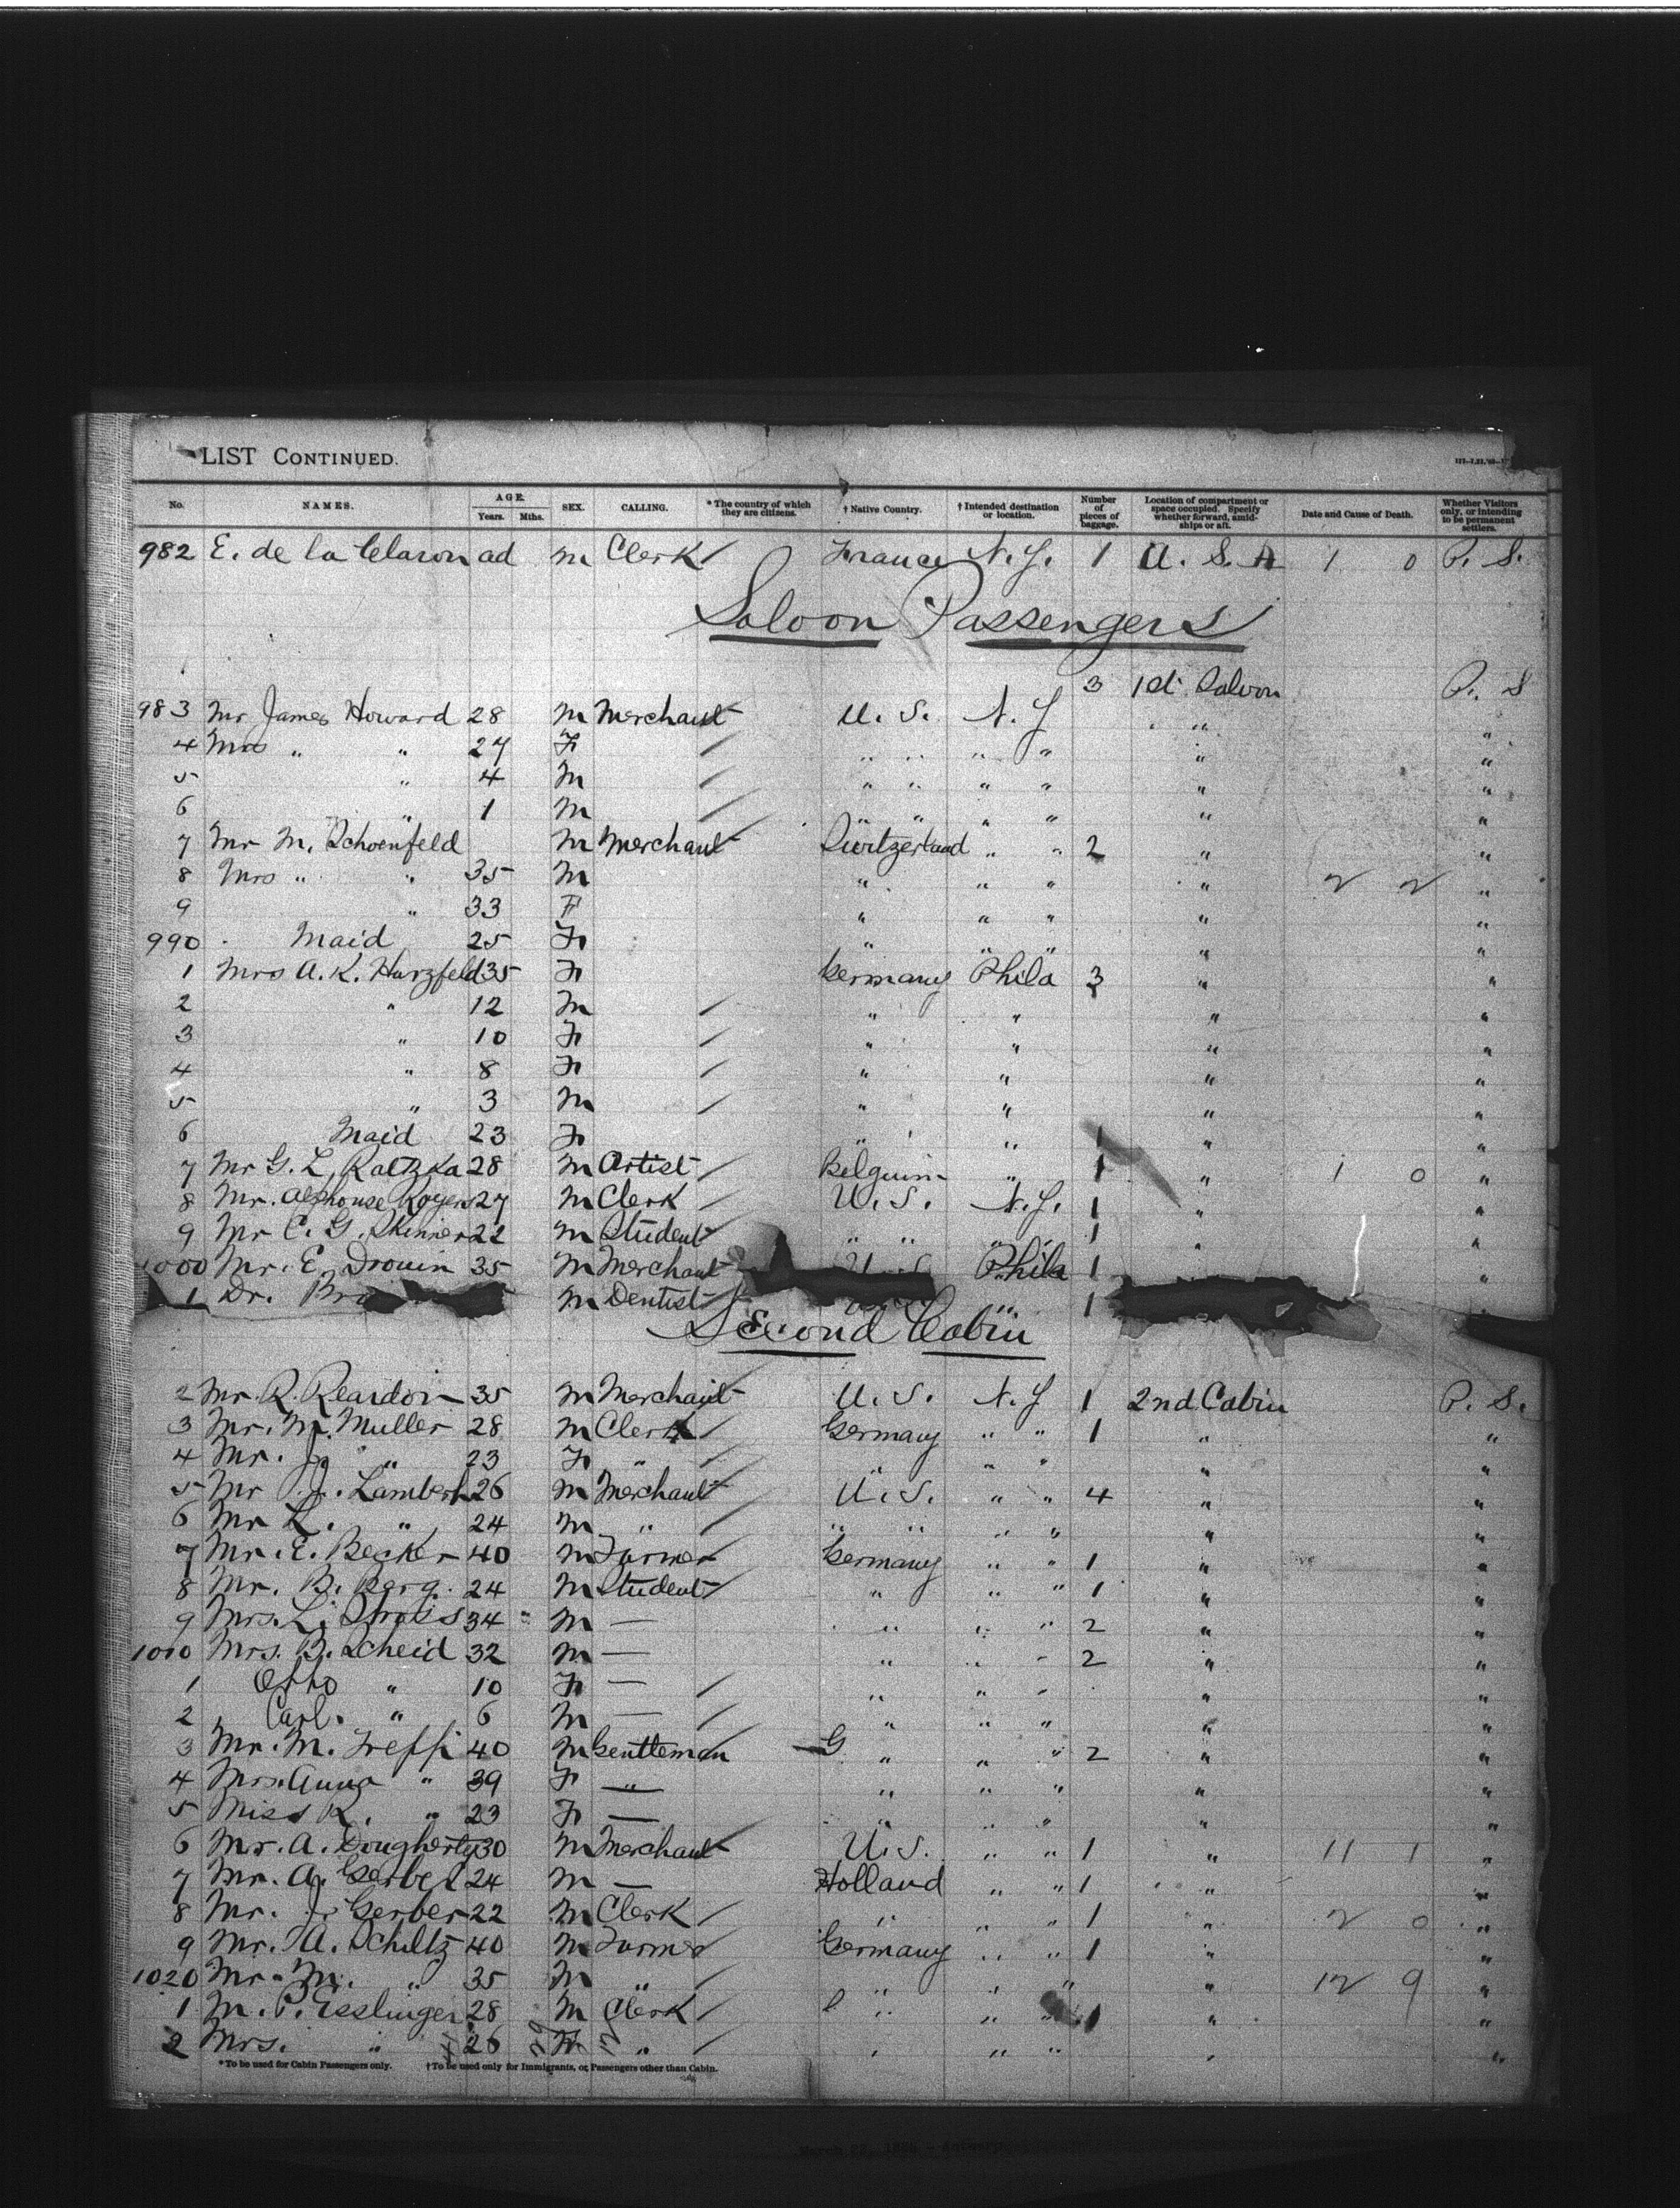 LIST CONTINUED.
No. NAMES. AGE. Years. Mths. SEX. CALLING. *The country of which they are citizens. † Native Country. † Intended destination or location. Number of pieces of baggage. Location of compartment or space occupied. Specify whether forward, amidships or aft. Date and Cause of Death. Whether Visitors only, or intending to be permanent settlers.
982 E. de la Claron ad m Clerk / France N.Y. 1 U. S. A 1 0 P. S.
Saloon Passengers
3 1st Saloon P. S
983 Mr James Howard 28 M Merchant U. S. N. Y " "
4 Mrs " " 27 F / " " " " " "
5 " 4 M / " " " " " "
6 " 1 M / " " " " " "
7 Mr M. Schoenfeld M Merchant Switzerland " " 2 " "
8 Mrs " " 35 M " " " " 2 2 "
9 " 33 F " " " " "
990 Maid 25 F " " " " "
1 Mrs A. K. Harzfeld 35 F Germany Phila 3 " "
2 " 12 M / " " " "
3 " 10 F / " " " "
4 " 8 F / " " " "
5 " 3 M / " " " "
6 Maid 23 F " " 1 " "
7 Mr G. L. Ratzka 28 M Artist / Belguim " 1 " 1 0 "
8 Mr. Alphonse Koyers 27 M Clerk / U. S. N.Y. 1 " "
9 Mr C. G. Skinner 22 M Student " " " " 1 " "
1000 Mr. E. Drouin 35 M Merchant U. S Phila 1 "
1 Dr. M Dentist " 1 "
Second Cabin
2 Mr. R. Reardon 35 M Merchant U. S. N. Y 1 2nd Cabin P. S.
3 Mr. M. Muller 28 M Clerk / Germany " " 1 " "
4 Mr. J. " 23 F " / " " " " "
5 Mr J. Lambert 26 M Merchant U. S. " " 4 " "
6 Mr L. " 24 M " / " " " " " "
7 Mr. E. Becker 40 M Farmer Germany " " 1 " "
8 Mr. B. Berg. 24 M Student " " " 1 " "
9 Mrs. L. 34 M — " " " 2 " "
1010 Mrs. B. Scheid 32 M — " " " 2 " "
1 Otto " 10 F — / " " " " "
2 Carl. " 6 M — / " " " " "
3 Mr. M. Treffi 40 M Gentleman G " " " 2 " "
4 Mrs. Anna " 39 F — " — " " " " "
5 Miss K. " 23 F — " " " " "
6 Mr. A. Dougherty 30 M Merchant U. S. " " 1 " 11 1 "
7 Mr. A. Gerber 24 M — Holland " " 1 " "
8 Mr. J. Gerber 22 M Clerk / " " " 1 " 2 0 "
9 Mr. A. Schultz 40 M Farmer Germany " " 1 " "
1020 Mr. M. " 35 M " / " " " " 12 9 "
1 M. P. Esslinger 28 M Clerk / " " " 1 " "
2 Mrs. " 26 F " / " " " " "
*To be used for Cabin Passengers only. †To be used only for Immigrants, or Passengers other than Cabin.